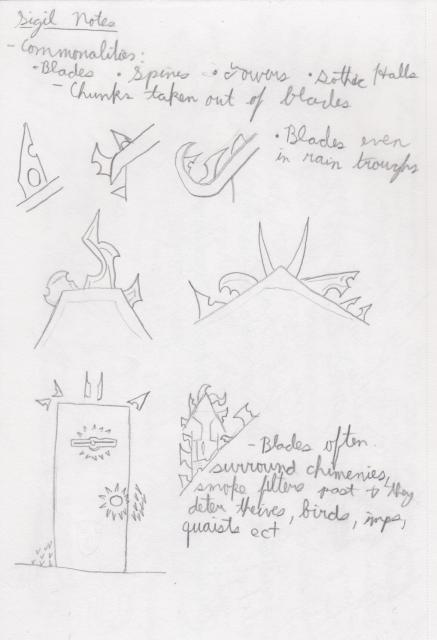 Sigil Notes
- Commonalities:
• Blades • Spines • Towers • Gothic Halls
- Chunks taken out of blades
• Blades even
in rain troughs
- Blades often
surround chimenies,
smoke filters past & they
deter theives, birds, imps,
quaists ect